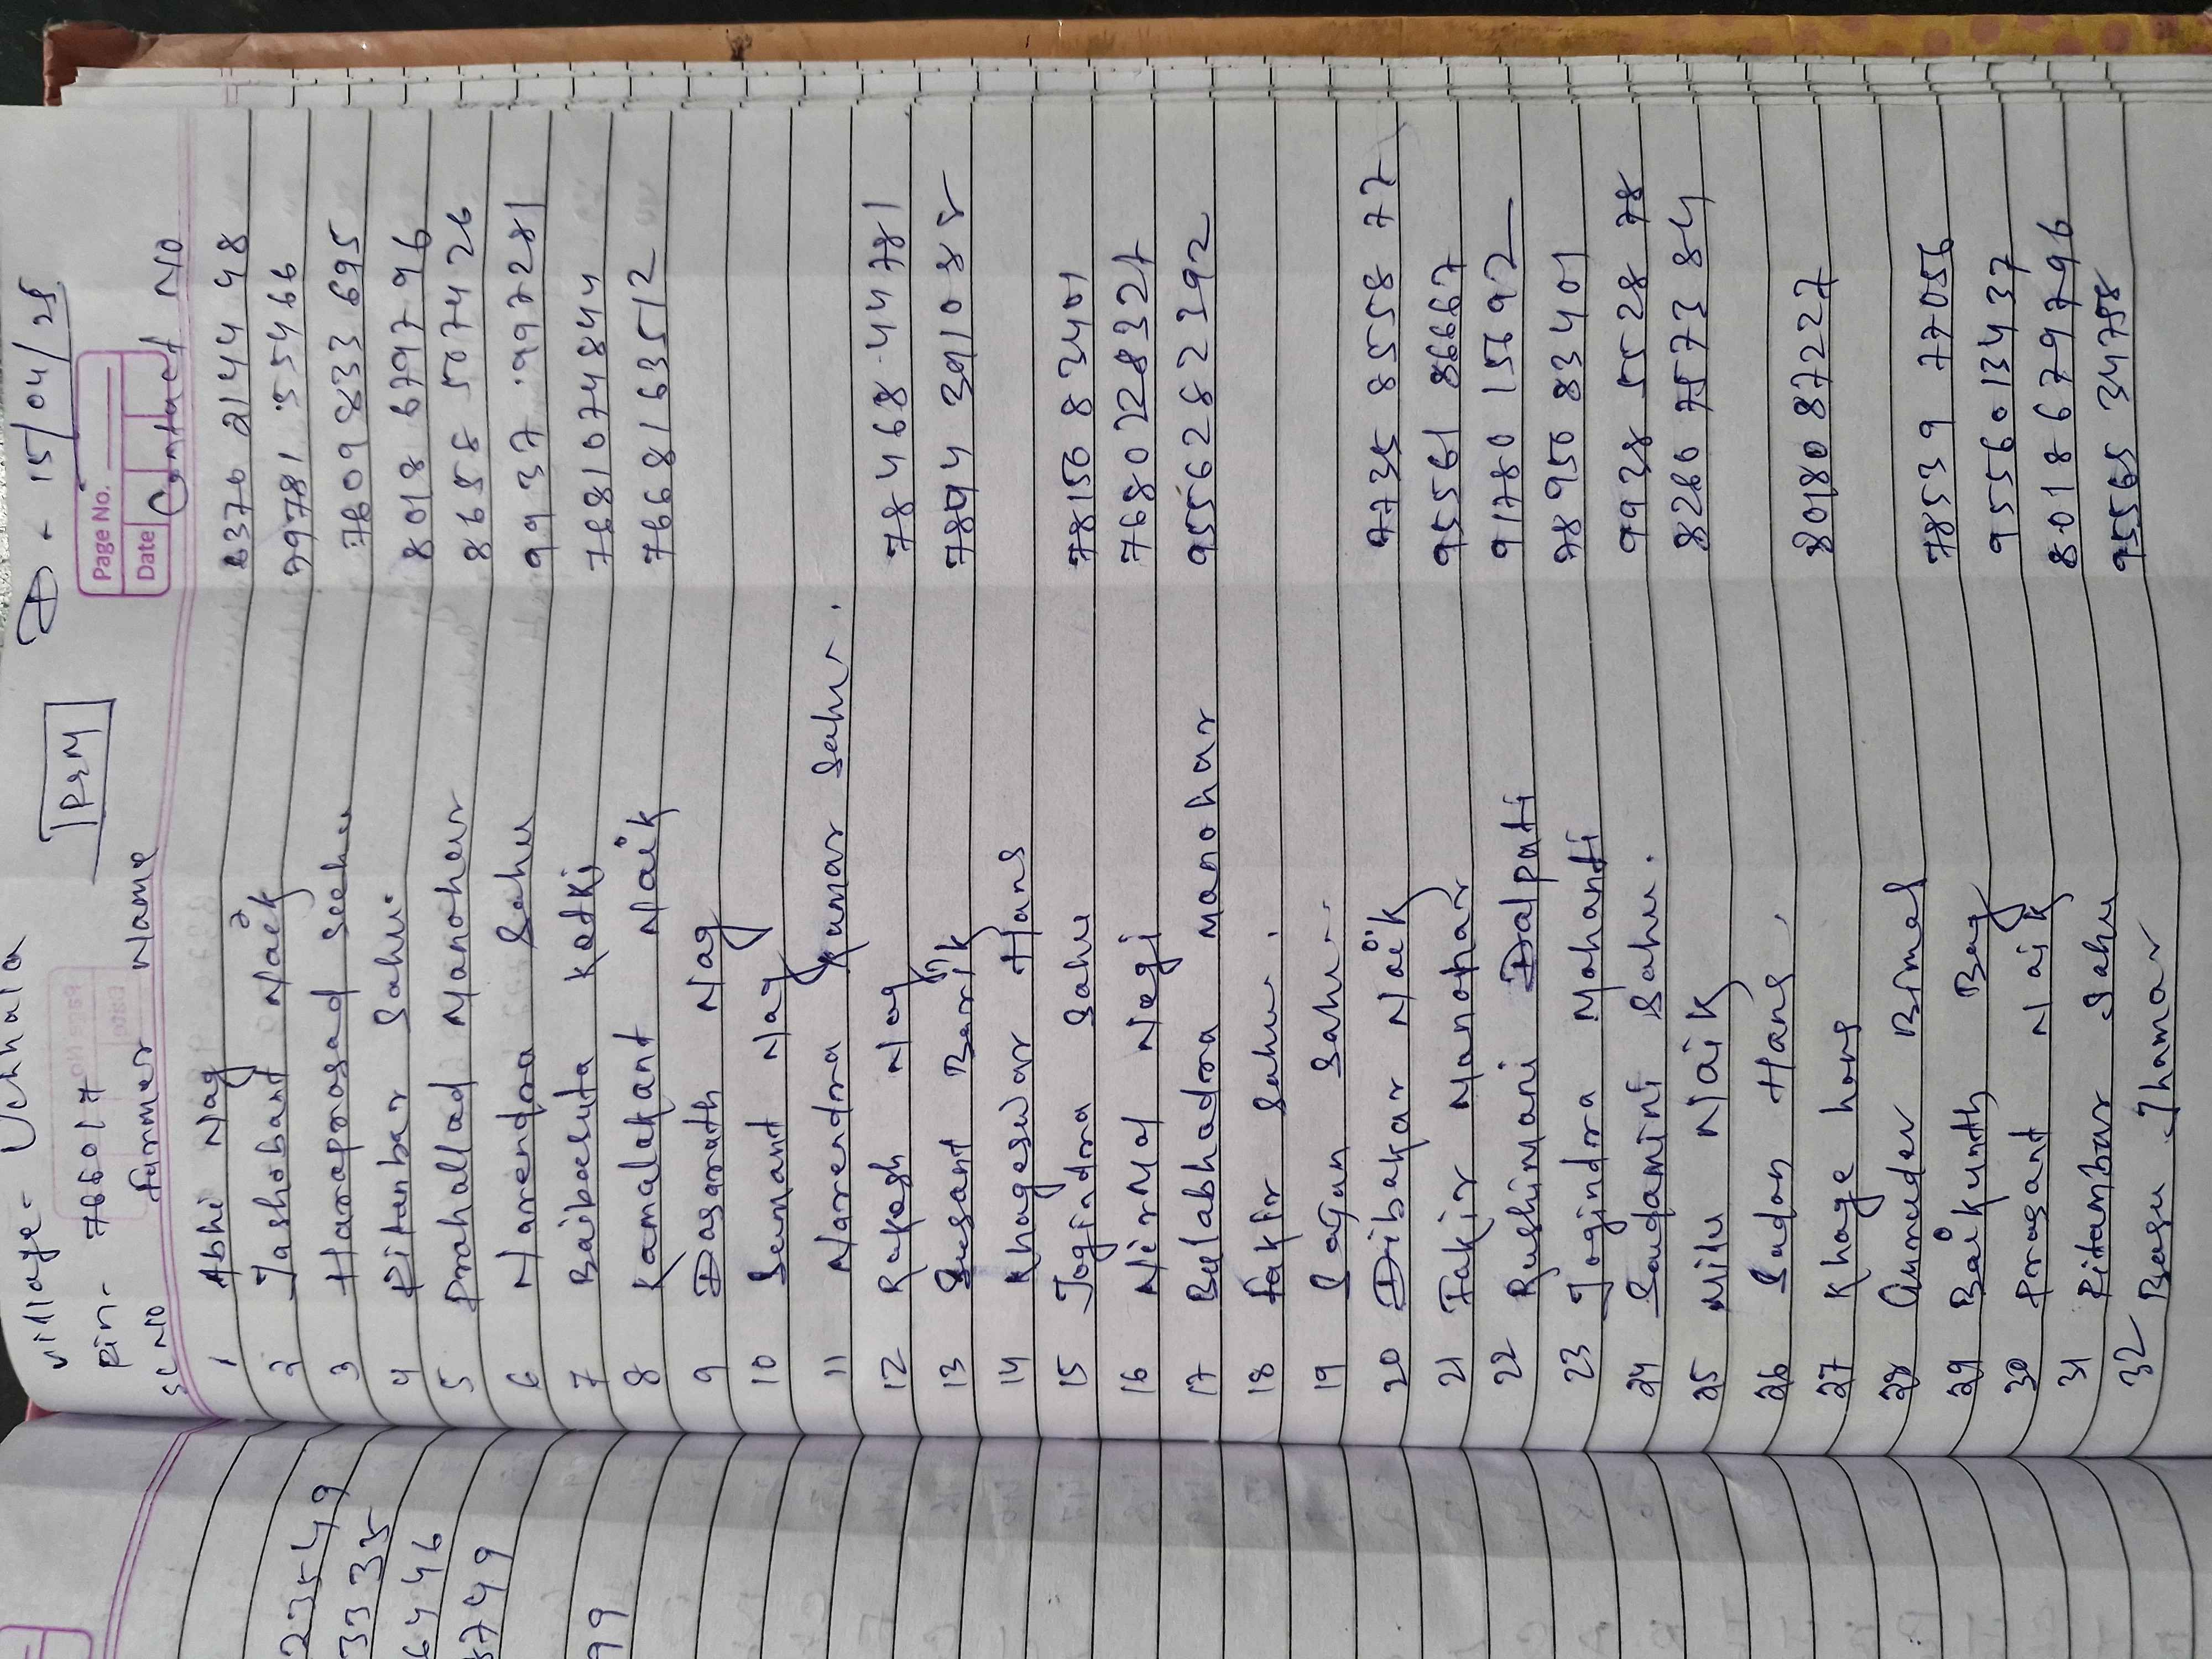 Village - Uchhala
PRM
D - 15/04/25
Pin - 766017
Page No.
Date
SL NO Farmer Name Contact No
1 Abhi Nag 6370 2144 48
2 Jashobant Naik 99781 55466
3 Haraprasad Sahu 7609833695
4 Pitanbar Sahu. 8018 679796
5 Prahallad Manohar 8658 507426
6 Narendra Sahu 9937 997281
7 Baibasuta Ketki 7681074844
8 Kamalakant Naik 7668163512
9 Dasarath Nag
10 Sumant Nag
11 Narendra Kumar Sahu.
12 Rakesh Nag 78468 44781
13 Susant Barik 7894 391085
14 Khageswar Hans
15 Jogindra Sahu 78150 83401
16 Nirmal Negi 7680228327
17 Balabhadra Manohar 9556282392
18 Fakir Sahu.
19 Sagun Sahu.
20 Dibakar Naik 7735 8558 77
21 Fakir Manohar 95561 86667
22 Rushimani Dalpati 91780 15692
23 Jogindra Mahanti 78950 83401
24 Soudamini Sahu. 9938 5528 78
25 Nilu Naik 8260 757384
26 Sadan Hans.
27 Khage hans 80180 87227
28 Bimal
29 Baikunth Bag 78539 77056
30 Prasant Naik 9556013437
31 Pitambar Sahu 8018679796
32 Basu Jhamar 95565 34758
23549
3335
6446
8749
99